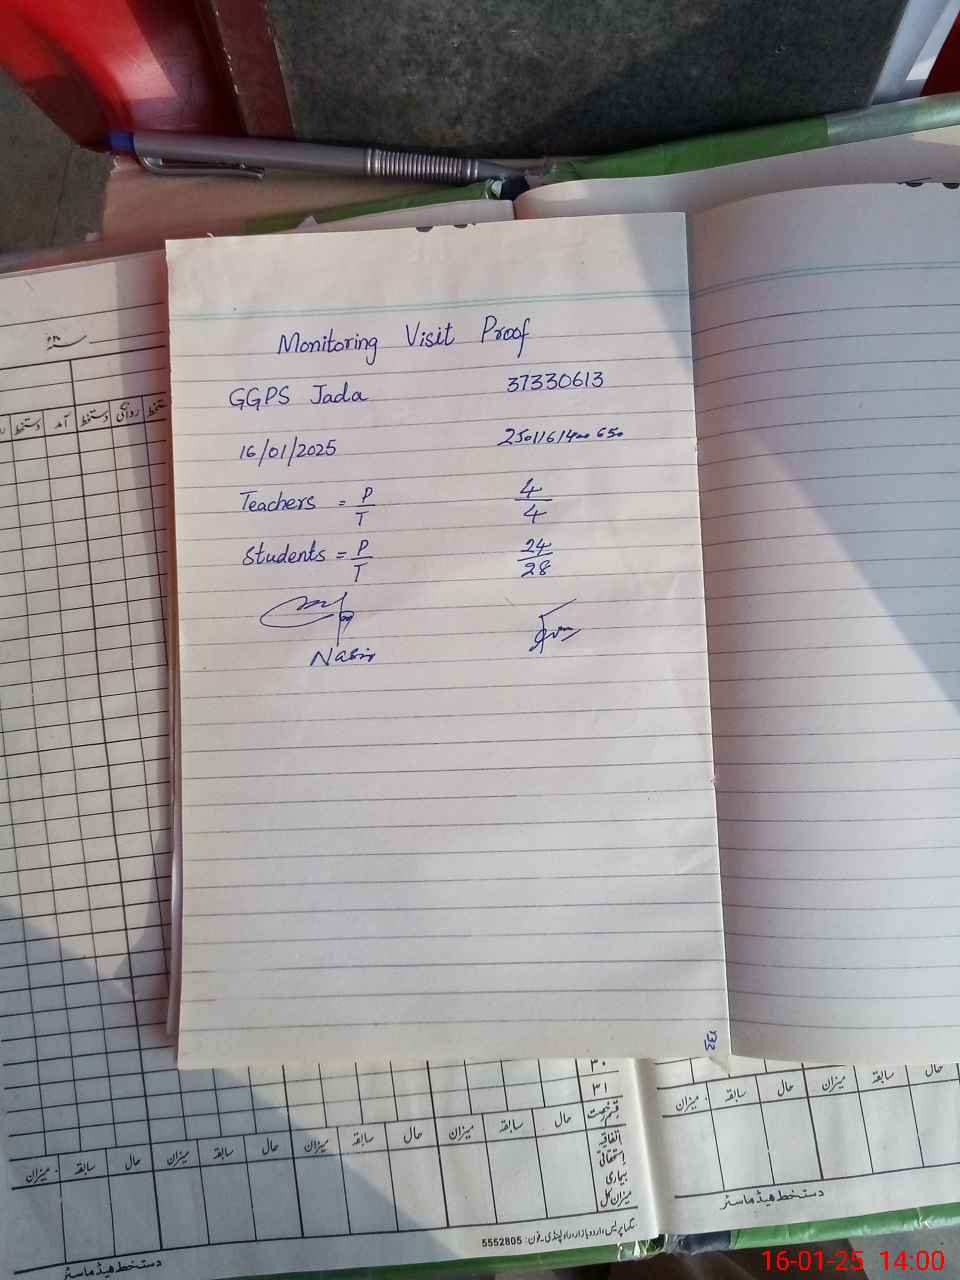 Monitoring Visit Proof
GGPS Jada 37330613
16/01/2025
Teachers = P/T 4/4
Students = P/T 24/28
Nasir
دستخط آمد دستخط روانگی دستخط
۳۰
۳۱
حال سابقہ میزان حال سابقہ میزان حال سابقہ میزان حال سابقہ میزان
اتفاقیہ
استحقاقی
بیماری
میزان کل
دستخط ہیڈ ماسٹر
5552805
حال سابقہ میزان حال سابقہ میزان
دستخط ہیڈ ماسٹر
16-01-25 14:00